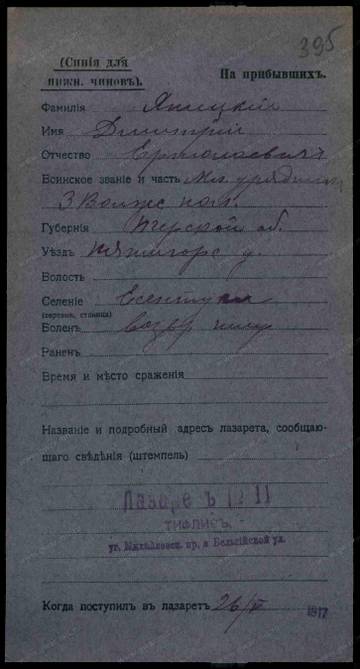 395
(Синія для
нижн. чиновъ).
На прибывшихъ.
Фамилія Яницкій
Имя Дмитрій
Отчество Ермолаевичъ
Воинское званіе и часть Мл. урядник
3 Волжс пол.
Губернія Терской об.
Уѣздъ Пятигорс
Волость
Селеніе Есентуки
(деревня, станица)
Боленъ возвр
Раненъ
Время и мѣсто сраженія
Названіе и подробный адресъ лазарета, сообщаю-
щаго свѣдѣнія (штемпель)
Лазаре ъ № 11
ТИФЛИСЪ.
уг. Михайловск. пр. и Бельгійской ул.
Когда поступил въ лазаретъ 26/V 1917